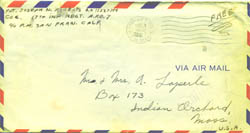 PVT. JOSEPH N.
CO G. 17TH INF. REGT. A.P.O. 7
% P.M. SAN FRAN. CALIF.
FREE
VIA AIR MAIL
Mr & Mrs. A. Laperle
Box 173
Indian Orchard,
Mass.
U.S.A.